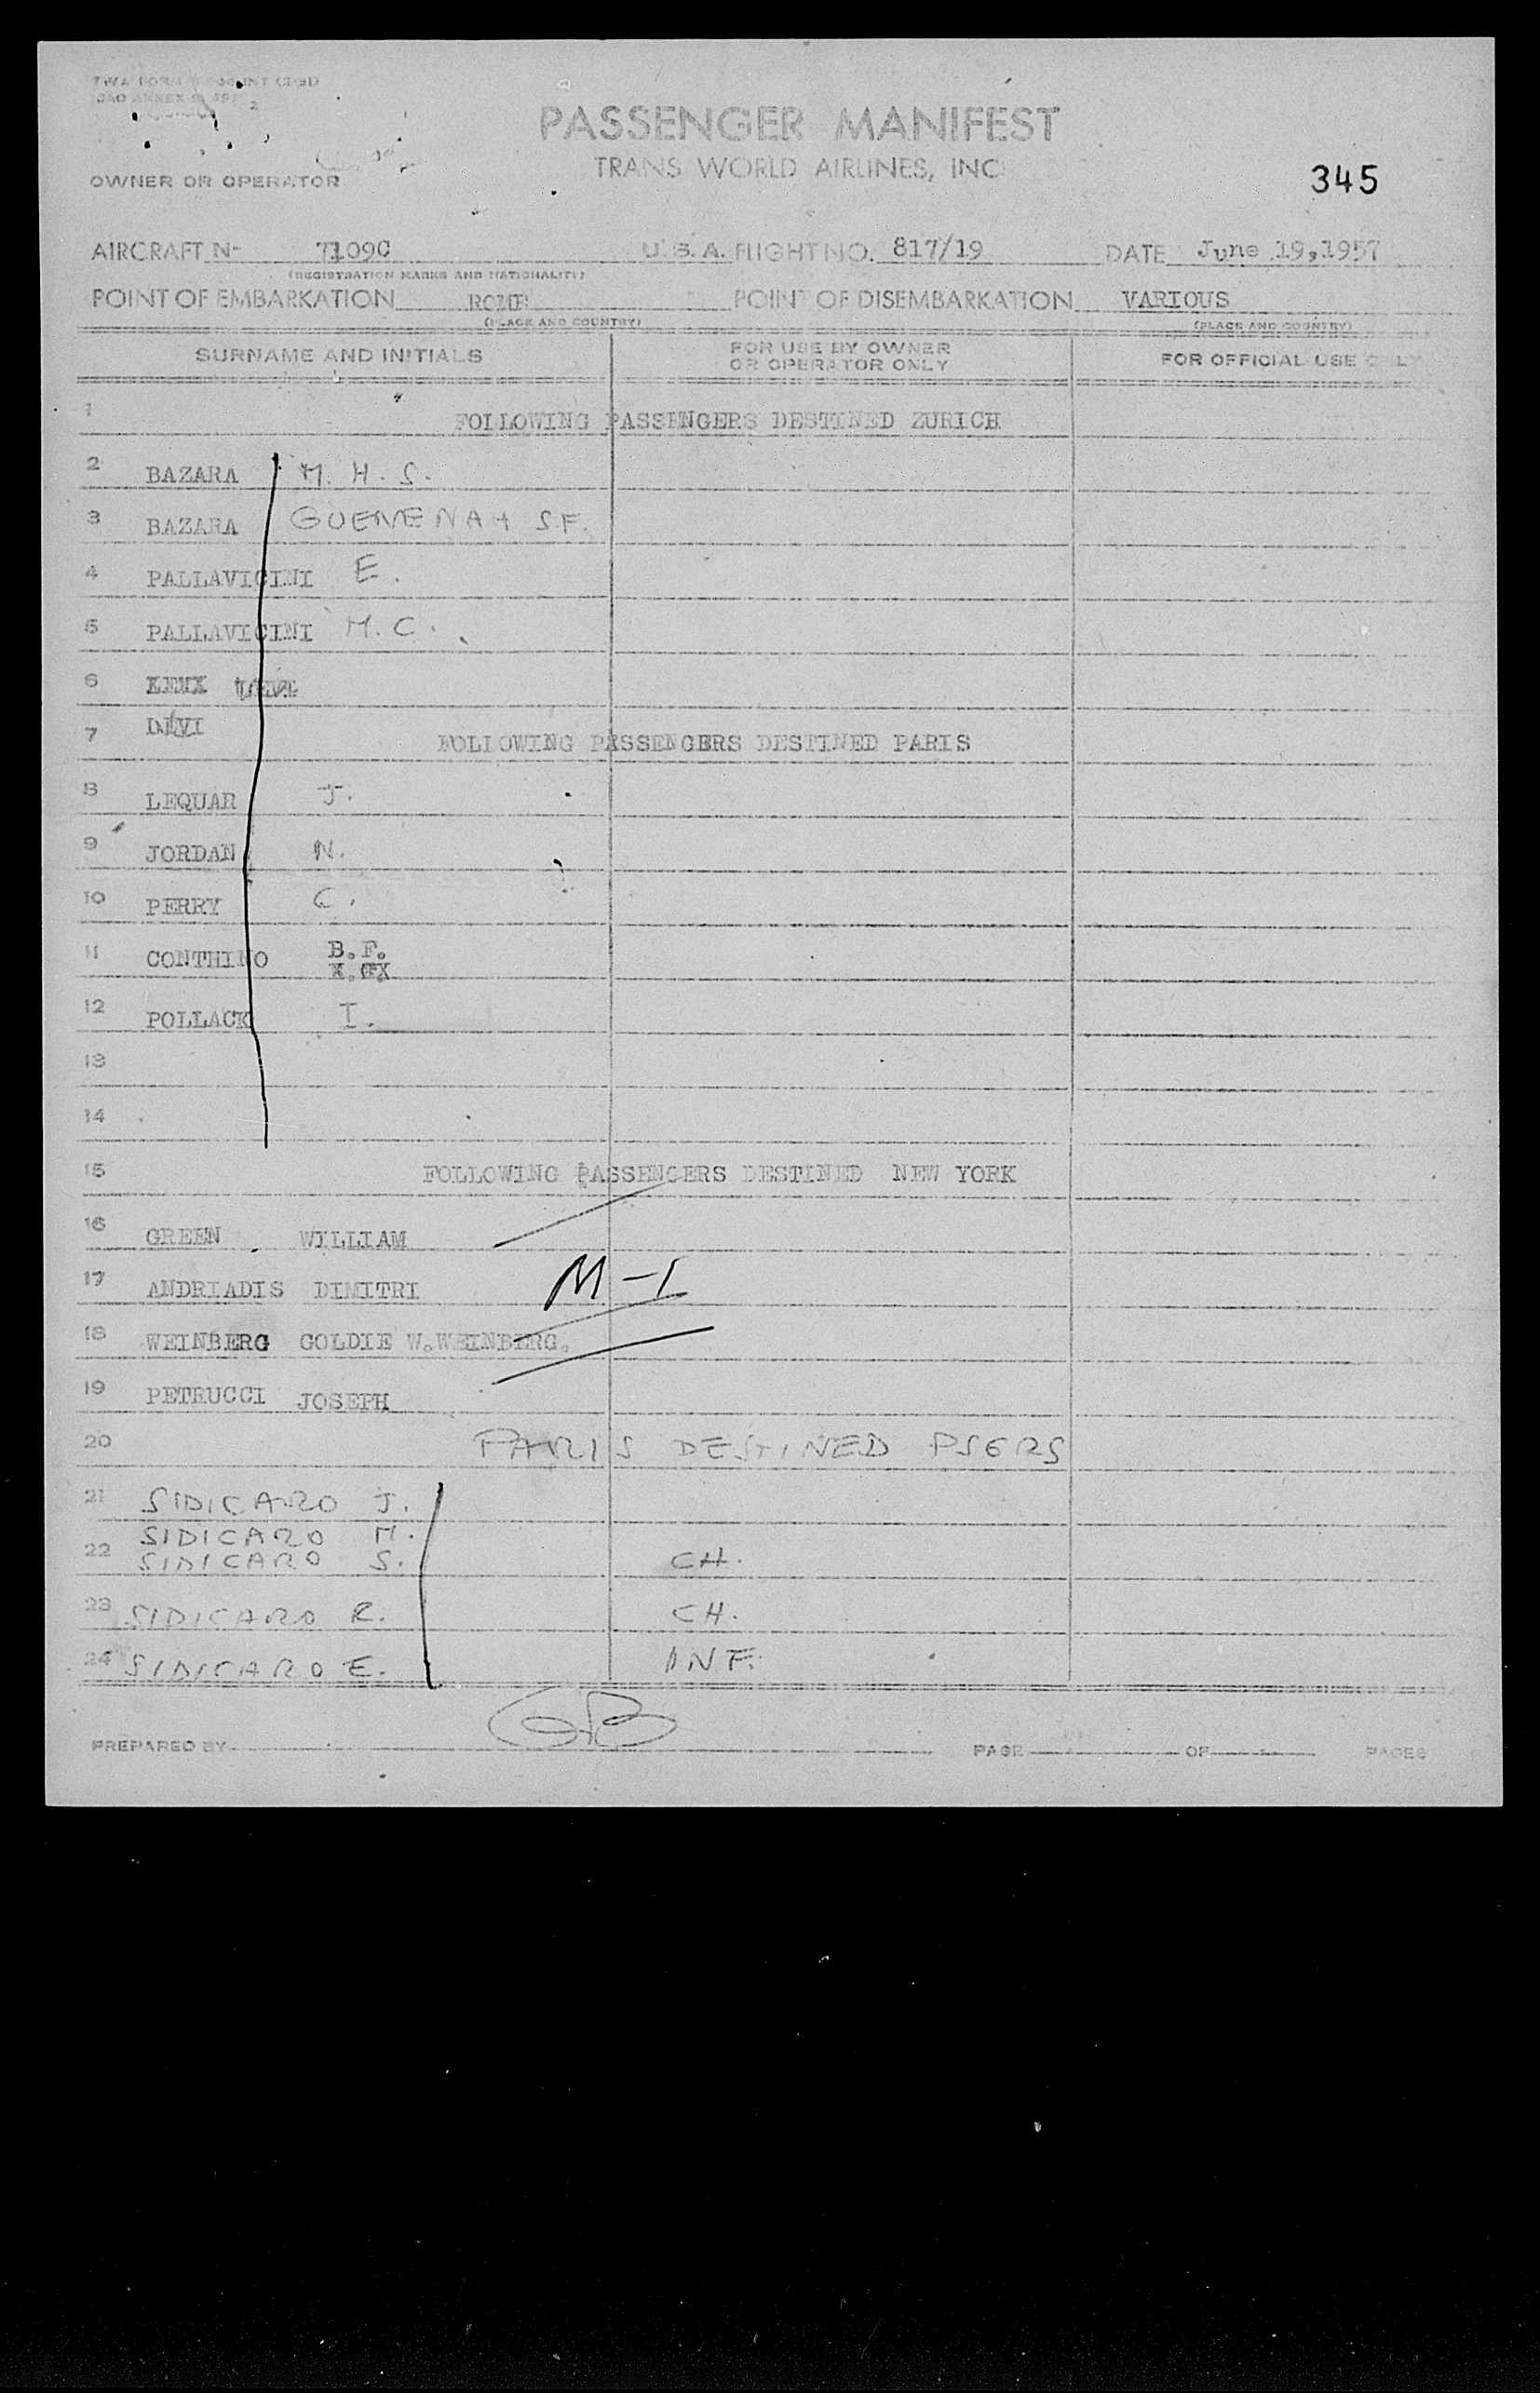 PASSENGER MANIFEST
TRANS WORLD AIRLINES, INC.
OWNER OR OPERATOR
345
AIRCRAFT Nº 7109C U. S. A. FLIGHT NO. 817/19 DATE June 19,1957
(REGISTRATION MARKS AND NATIONALITY)
POINT OF EMBARKATION ROME POINT OF DISEMBARKATION VARIOUS
(PLACE AND COUNTRY) (PLACE AND COUNTRY)
SURNAME AND INITIALS FOR USE BY OWNER OR OPERATOR ONLY FOR OFFICIAL USE ONLY
1 FOLLOWING PASSENGERS DESTINED ZURICH
2 BAZARA M. H. S.
3 BAZARA S.F.
4 PALLAVICINI E.
5 PALLAVICINI M.C.
6
7 FOLLOWING PASSENGERS DESTINED PARIS
8 LEQUAR J.
9 JORDAN N.
10 PERRY C.
11 CONTHINO B.F.
12 POLLACK I.
13
14
15 FOLLOWING PASSENGERS DESTINED NEW YORK
16 GREEN WILLIAM
17 ANDRIADIS DIMITRI M-1
18 WEINBERG GOLDIE W.WEINBERG.
19 PETRUCCI JOSEPH
20 PARIS DESTINED PSGRS
21 SIDICARO J.
SIDICARO M.
22 SIDICARO S. CH.
23 SIDICARO R. CH.
24 SIDICARO E. INF.
PREPARED BY GB PAGE OF PAGES